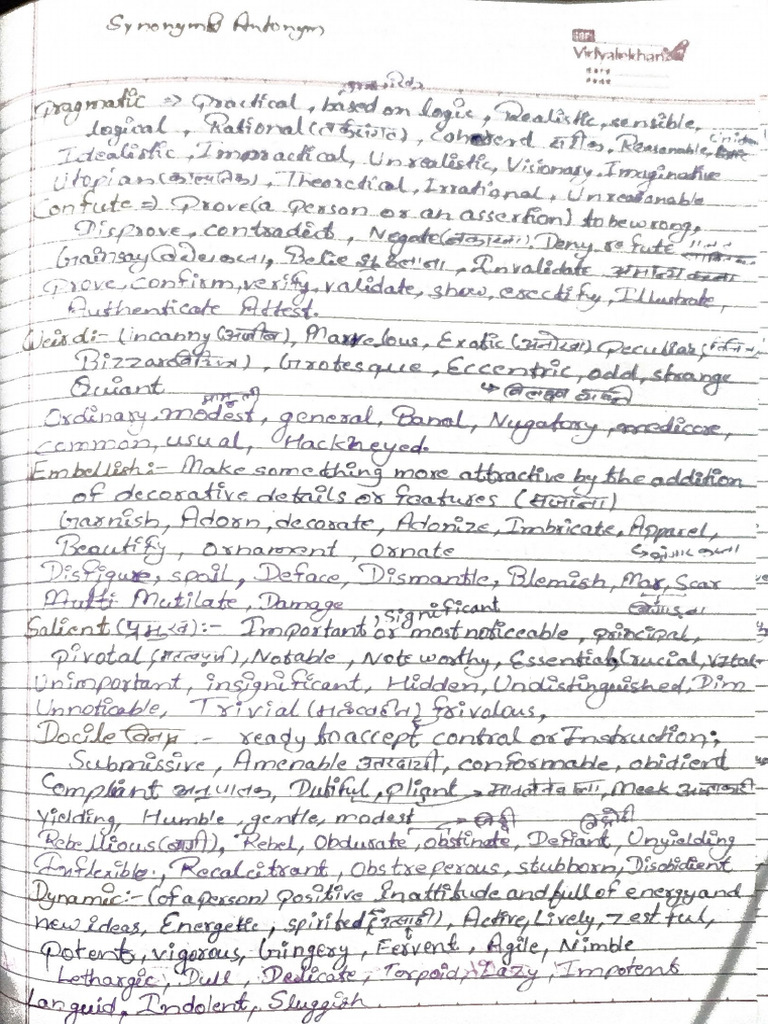 Synonym & Antonym
Vidyalekhan
Pragmatic => Practical, based on logic, Realistic, sensible,
logical, Rational (तर्कसंगत), Coherend Reasonable,
Idealistic, Impractical, Unrealistic, Visionary, Imaginative
Utopian (काल्पनिक), Theoretical, Irrational, Unreasonable
Confute => Prove (a person or an assertion) to be wrong,
Disprove, contradict, Negate (नकारना), Deny, refute
Gainsay Belie Invalidate अमान्य करना
Prove, confirm, verify, validate, show, erectify, Illustrate,
Authenticate Attest.
Weird:- Uncanny (अजीब), Marvelous, Exatic (अनोखा) Peculiar,
Bizzare (विचित्र), Grotesque, Eccentric, odd, strange
Quiant
मामूली
Ordinary, modest, general, Banal, Nugatory, medicore,
common, usual, Hackneyed.
Embellish:- Make something more attractive by the addition
of decorative details or features (सजाना)
Garnish, Adorn, decorate, Adonize, Imbricate, Apparel,
Beautify, ornament, ornate
Disfigure, spoil, Deface, Dismantle, Blemish, Mar, Scar
Multi Mutilate, Damage
Salient (प्रमुख):- Important, significant or most noticeable, principal,
pivotal (महत्वपूर्ण), Notable, Note worthy, Essential, Crucial, Vital
Unimportant, insignificant, Hidden, Undistinguished, Dim
Unnoticable, Trivial (महत्वहीन) frivolous,
Docile विनम्र :- ready to accept control or Instruction;
Submissive, Amenable उत्तरदायी, conformable, obidient
Compliant अनुपालन, Dutiful, pliant Meek
Yielding, Humble, gentle, modest
Rebellious (बागी), Rebel, Obdurate, obstinate, Defiant, Unyielding
Inflexible, Recalcitrant, Obstreperous, stubborn, Disobidient
Dynamic:- (of a person) positive In attitude and full of energy and
new ideas, Energetic, spirited (उत्साही), Active, Lively, zestful,
potent, vigorous, Gingery, Fervent, Agile, Nimble
Lethargic, Dull, Dedicate, Torpoid, Lazy, Impotent
Languid, Indolent, Sluggish.